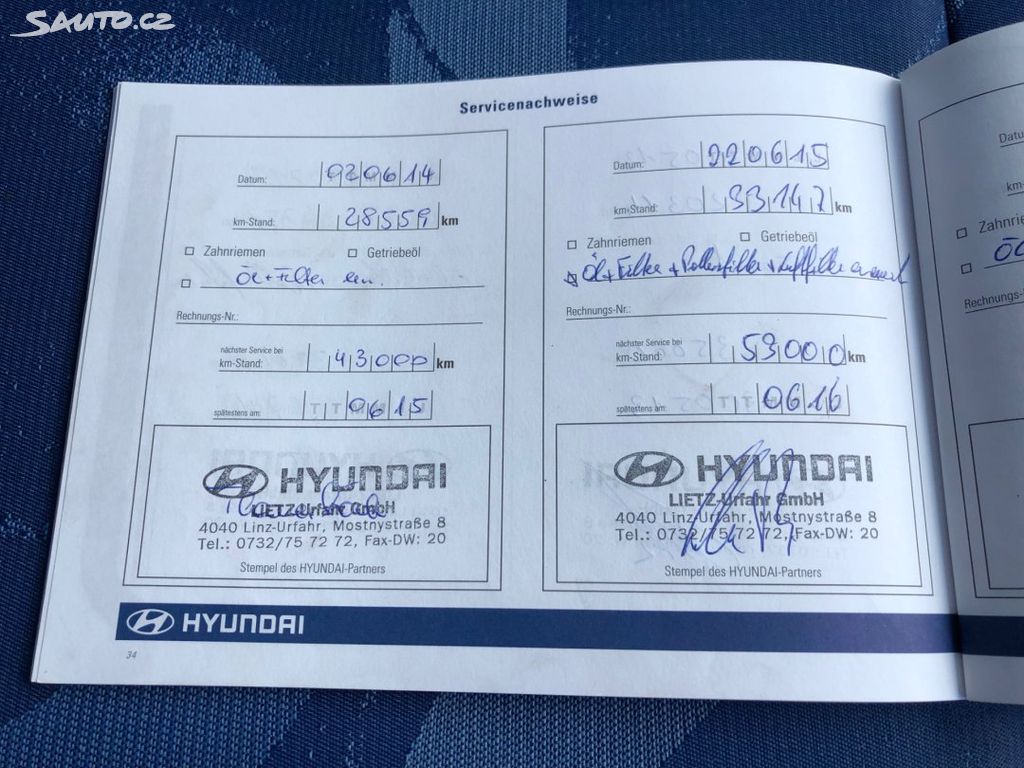 SAUTO.CZ
Servicenachweise
Datum: 020614
km-Stand: 28559 km
Zahnriemen Getriebeöl
Öl + Filter
Rechnungs-Nr.:
nächster Service bei
km-Stand: 43000 km
spätestens am: 0615
HYUNDAI
LIETZ-Urfahr GmbH
4040 Linz-Urfahr, Mostnystraße 8
Tel.: 0732/75 72 72, Fax-DW: 20
Stempel des HYUNDAI-Partners
Datum: 220615
km-Stand: 33147 km
Zahnriemen Getriebeöl
Öl + Filter + Pollenfilter + Luftfilter erneuert
Rechnungs-Nr.:
nächster Service bei
km-Stand: 53000 km
spätestens am: 0616
HYUNDAI
LIETZ-Urfahr GmbH
4040 Linz-Urfahr, Mostnystraße 8
Tel.: 0732/75 72 72, Fax-DW: 20
Stempel des HYUNDAI-Partners
HYUNDAI
34